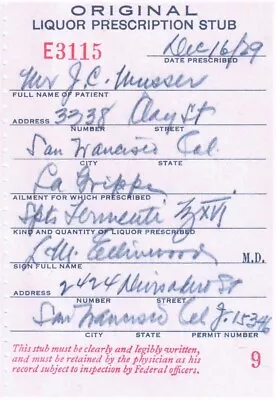 ORIGINAL
LIQUOR PRESCRIPTION STUB
E3115
Dec 16/29
DATE PRESCRIBED
Mr J.C. Musser
FULL NAME OF PATIENT
ADDRESS 3338 Clay St
NUMBER STREET
San Francisco Cal.
CITY STATE
La Grippe
AILMENT FOR WHICH PRESCRIBED
Spts Fermenti ℥XVI
KIND AND QUANTITY OF LIQUOR PRESCRIBED
L. M. M.D.
SIGN FULL NAME
ADDRESS 2424 St
NUMBER STREET
San Francisco Cal
CITY STATE PERMIT NUMBER
This stub must be clearly and legibly written,
and must be retained by the physician as
his record subject to inspection by Federal officers.
9